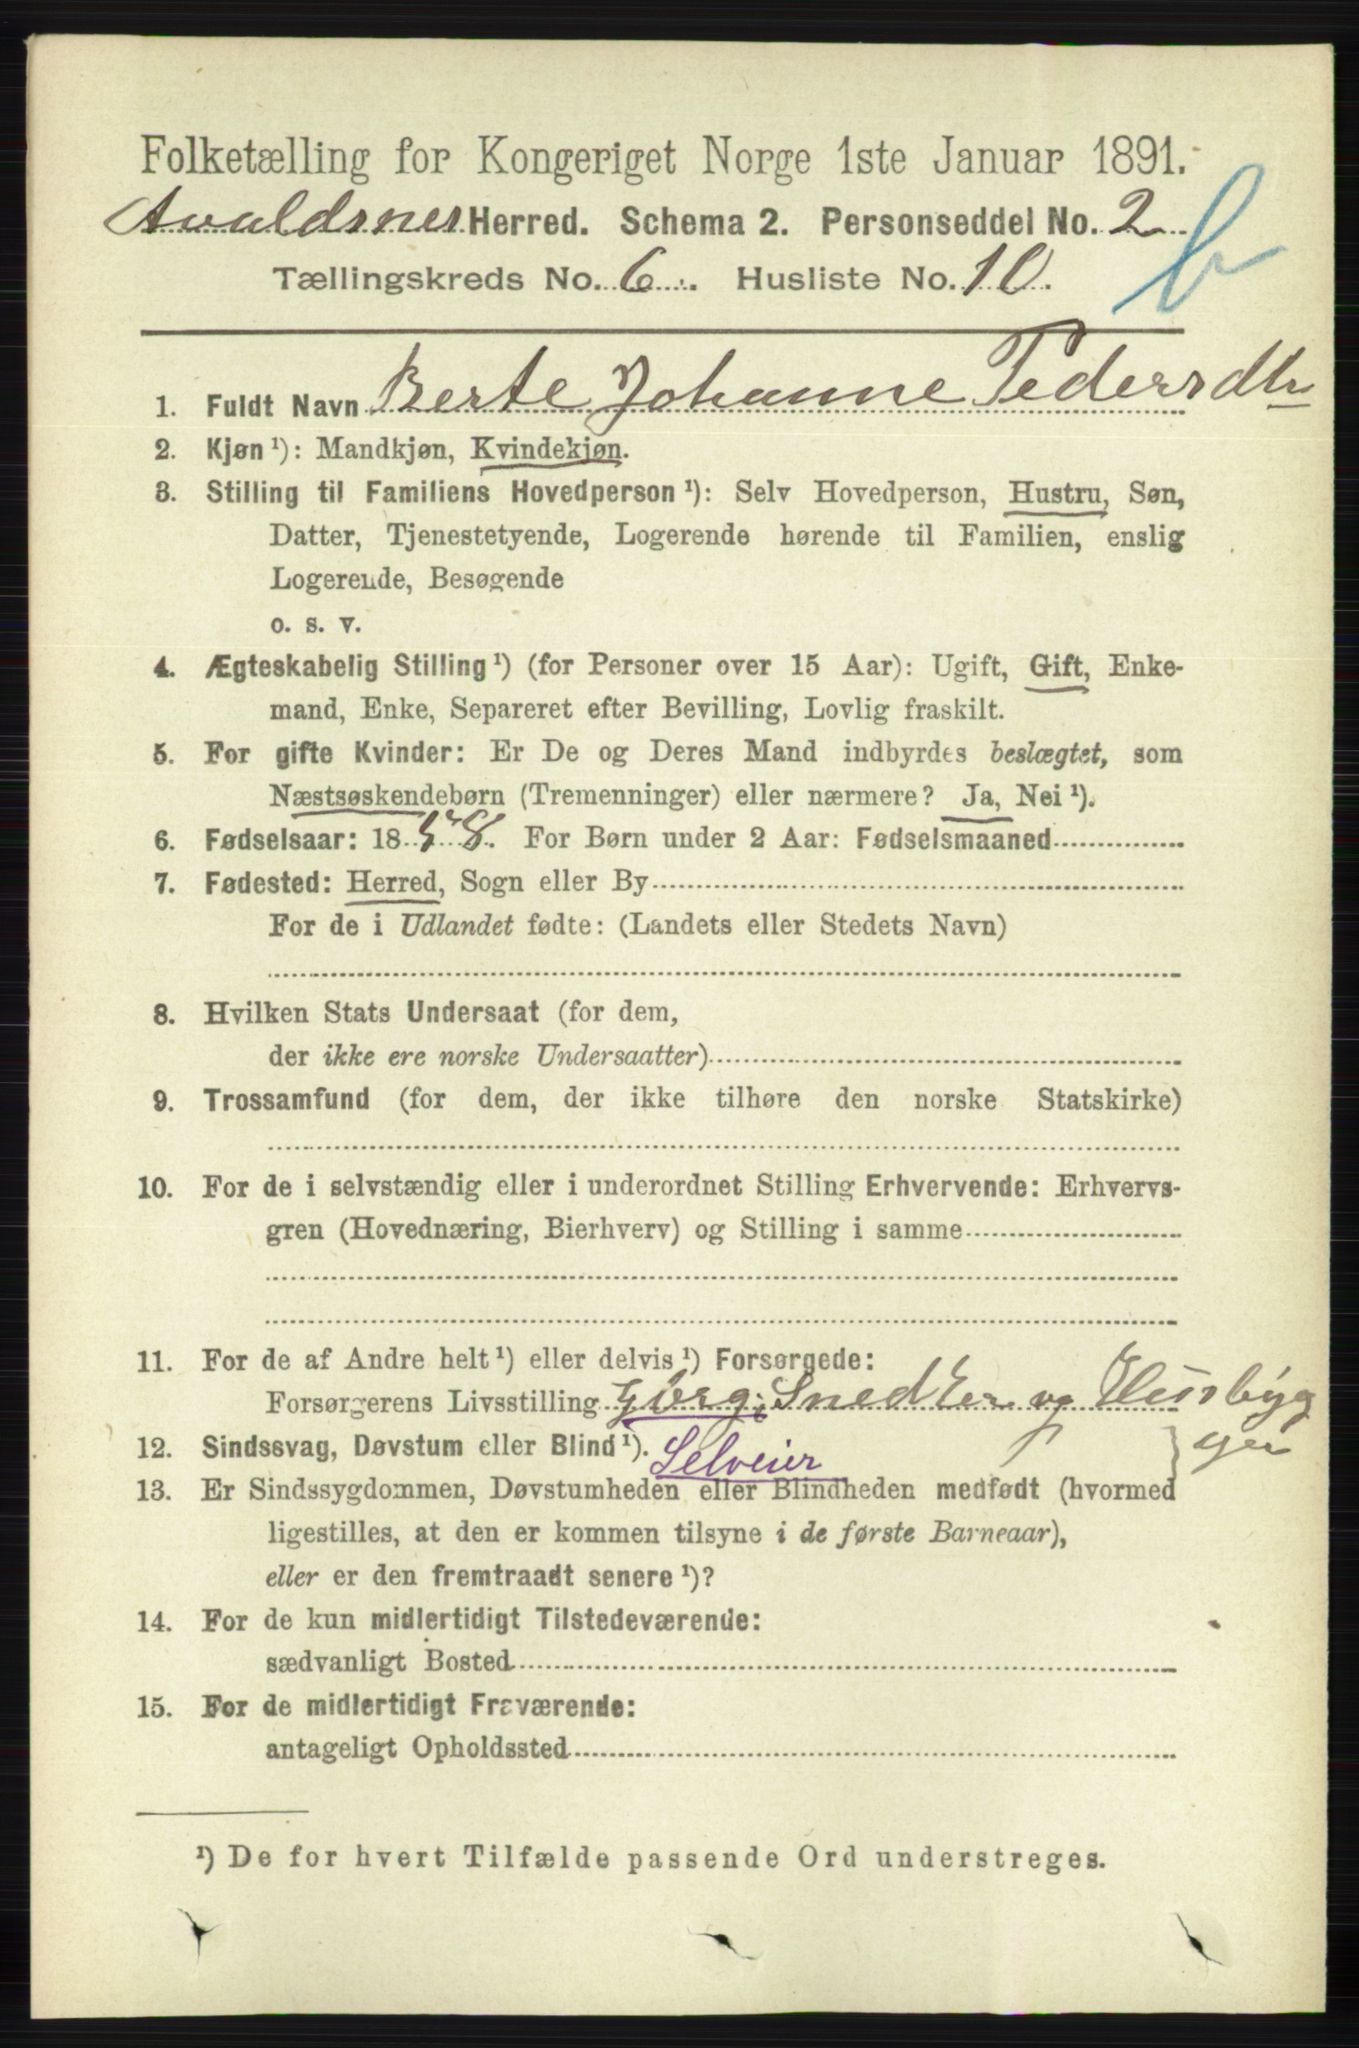 Folketælling for Kongeriget Norge 1ste Januar 1891.
Avaldsnes Herred. Schema 2. Personseddel No. 2
b
Tællingskreds No. 6. Husliste No. 10.
1. Fuldt Navn Berte Johanne Pedersdtr
2. Kjøn ¹): Mandkjøn, Kvindekjøn.
3. Stilling til Familiens Hovedperson ¹): Selv Hovedperson, Hustru, Søn,
Datter, Tjenestetyende, Logerende hørende til Familien, enslig
Logerende, Besøgende
o. s. v.
4. Ægteskabelig Stilling ¹) (for Personer over 15 Aar): Ugift, Gift, Enke-
mand, Enke, Separeret efter Bevilling, Lovlig fraskilt.
5. For gifte Kvinder: Er De og Deres Mand indbyrdes beslægtet, som
Næstsøskendebørn (Tremenninger) eller nærmere? Ja, Nei ¹).
6. Fødselsaar: 18 58. For Børn under 2 Aar: Fødselsmaaned
7. Fødested: Herred, Sogn eller By
For de i Udlandet fødte: (Landets eller Stedets Navn)
8. Hvilken Stats Undersaat (for dem,
der ikke ere norske Undersaatter)
9. Trossamfund (for dem, der ikke tilhøre den norske Statskirke)
10. For de i selvstændig eller i underordnet Stilling Erhvervende: Erhvervs-
gren (Hovednæring, Bierhverv) og Stilling i samme
11. For de af Andre helt ¹) eller delvis ¹) Forsørgede:
Forsørgerens Livsstilling Gbrg; Snedker og Husbyg
ger
12. Sindssvag, Døvstum eller Blind ¹). Selveier
13. Er Sindssygdommen, Døvstumheden eller Blindheden medfødt (hvormed
ligestilles, at den er kommen tilsyne i de første Barneaar),
eller er den fremtraadt senere ¹)?
14. For de kun midlertidigt Tilstedeværende:
sædvanligt Bosted
15. For de midlertidigt Fraværende:
antageligt Opholdssted
¹) De for hvert Tilfælde passende Ord understreges.